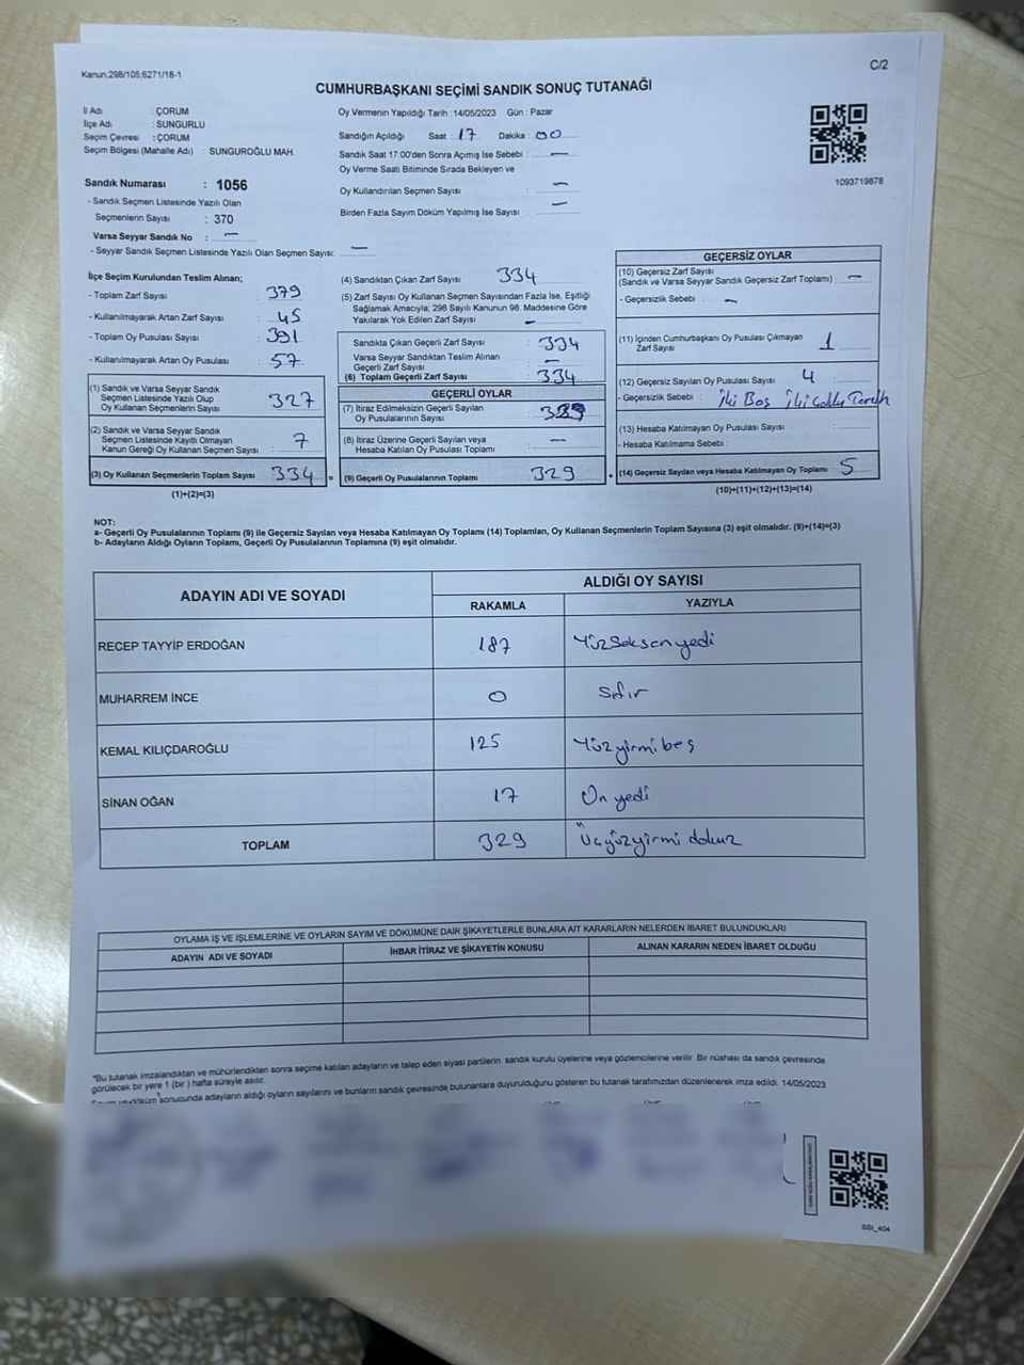 Kanun:298/105;6271/18-1
C/2
CUMHURBAŞKANI SEÇİMİ SANDIK SONUÇ TUTANAĞI
İl Adı : ÇORUM
İlçe Adı : SUNGURLU
Seçim Çevresi : ÇORUM
Seçim Bölgesi (Mahalle Adı) : SUNGUROĞLU MAH.
Sandık Numarası : 1056
- Sandık Seçmen Listesinde Yazılı Olan
Seçmenlerin Sayısı : 370
Varsa Seyyar Sandık No : —
- Seyyar Sandık Seçmen Listesinde Yazılı Olan Seçmen Sayısı: —
Oy Vermenin Yapıldığı Tarih : 14/05/2023 Gün : Pazar
Sandığın Açıldığı Saat : 17 Dakika : 00
Sandık Saat 17:00'den Sonra Açılmış İse Sebebi : —
Oy Verme Saati Bitiminde Sırada Bekleyen ve
Oy Kullandırılan Seçmen Sayısı : —
Birden Fazla Sayım Döküm Yapılmış İse Sayısı : —
1093719878
İlçe Seçim Kurulundan Teslim Alınan;
- Toplam Zarf Sayısı : 379
- Kullanılmayarak Artan Zarf Sayısı : 45
- Toplam Oy Pusulası Sayısı : 391
- Kullanılmayarak Artan Oy Pusulası : 57
(1) Sandık ve Varsa Seyyar Sandık
Seçmen Listesinde Yazılı Olup
Oy Kullanan Seçmenlerin Sayısı : 327
(2) Sandık ve Varsa Seyyar Sandık
Seçmen Listesinde Kayıtlı Olmayan
Kanun Gereği Oy Kullanan Seçmen Sayısı : 7
(3) Oy Kullanan Seçmenlerin Toplam Sayısı : 334
(1)+(2)=(3)
(4) Sandıktan Çıkan Zarf Sayısı : 334
(5) Zarf Sayısı Oy Kullanan Seçmen Sayısından Fazla İse, Eşitliği
Sağlamak Amacıyla; 298 Sayılı Kanunun 98. Maddesine Göre
Yakılarak Yok Edilen Zarf Sayısı : —
Sandıkta Çıkan Geçerli Zarf Sayısı : 334
Varsa Seyyar Sandıktan Teslim Alınan
Geçerli Zarf Sayısı : —
(6) Toplam Geçerli Zarf Sayısı : 334
GEÇERLİ OYLAR
(7) İtiraz Edilmeksizin Geçerli Sayılan
Oy Pusulalarının Sayısı : 329
(8) İtiraz Üzerine Geçerli Sayılan veya
Hesaba Katılan Oy Pusulası Toplamı : —
(9) Geçerli Oy Pusulalarının Toplamı : 329
GEÇERSİZ OYLAR
(10) Geçersiz Zarf Sayısı
(Sandık ve Varsa Seyyar Sandık Geçersiz Zarf Toplamı) : —
- Geçersizlik Sebebi : —
(11) İçinden Cumhurbaşkanı Oy Pusulası Çıkmayan
Zarf Sayısı : 1
(12) Geçersiz Sayılan Oy Pusulası Sayısı : 4
- Geçersizlik Sebebi : İki Boş İki Tercih
(13) Hesaba Katılmayan Oy Pusulası Sayısı :
- Hesaba Katılmama Sebebi :
(14) Geçersiz Sayılan veya Hesaba Katılmayan Oy Toplamı : 5
(10)+(11)+(12)+(13)=(14)
NOT:
a- Geçerli Oy Pusulalarının Toplamı (9) ile Geçersiz Sayılan veya Hesaba Katılmayan Oy Toplamı (14) Toplamları, Oy Kullanan Seçmenlerin Toplam Sayısına (3) eşit olmalıdır. (9)+(14)=(3)
b- Adayların Aldığı Oyların Toplamı, Geçerli Oy Pusulalarının Toplamına (9) eşit olmalıdır.
ADAYIN ADI VE SOYADI ALDIĞI OY SAYISI
RAKAMLA YAZIYLA
RECEP TAYYİP ERDOĞAN 187 Yüzseksenyedi
MUHARREM İNCE 0 Sıfır
KEMAL KILIÇDAROĞLU 125 Yüzyirmibeş
SİNAN OĞAN 17 On yedi
TOPLAM 329 Üçyüzyirmi dokuz
OYLAMA İŞ VE İŞLEMLERİNE VE OYLARIN SAYIM VE DÖKÜMÜNE DAİR ŞİKAYETLERLE BUNLARA AİT KARARLARIN NELERDEN İBARET BULUNDUKLARI
ADAYIN ADI VE SOYADI İHBAR İTİRAZ VE ŞİKAYETİN KONUSU ALINAN KARARIN NEDEN İBARET OLDUĞU
"Bu tutanak imzalandıktan ve mühürlendikten sonra seçime katılan adayların ve talep eden siyasi partilerin, sandık kurulu üyelerine veya gözlemcilerine verilir. Bir nüshası da sandık çevresinde
görülecek bir yere 1 (bir) hafta süreyle asılır.
sonucunda adayların aldığı oyların sayılarını ve bunların sandık çevresinde bulunanlara duyurulduğunu gösteren bu tutanak tarafımızdan düzenlenerek imza edildi. 14/05/2023